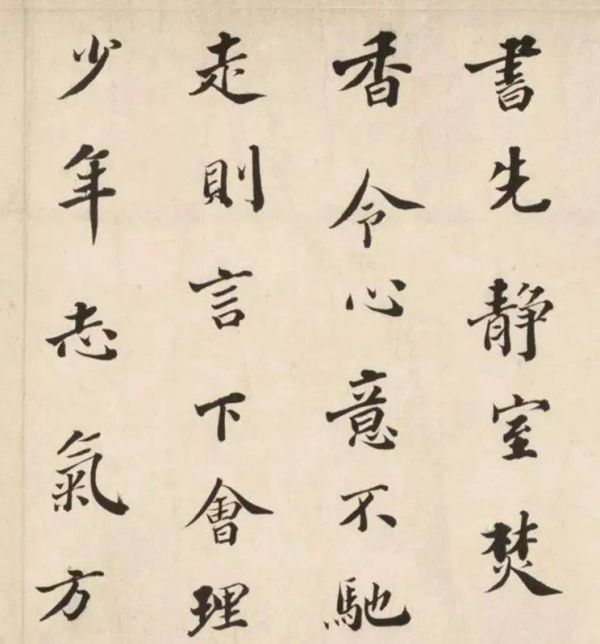 書先静室焚
香令心意不馳
走則言下會理
少年志氣方